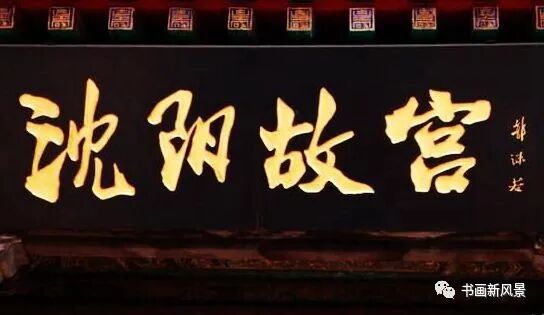 沈阳故宫
郭沫若
书画新风景